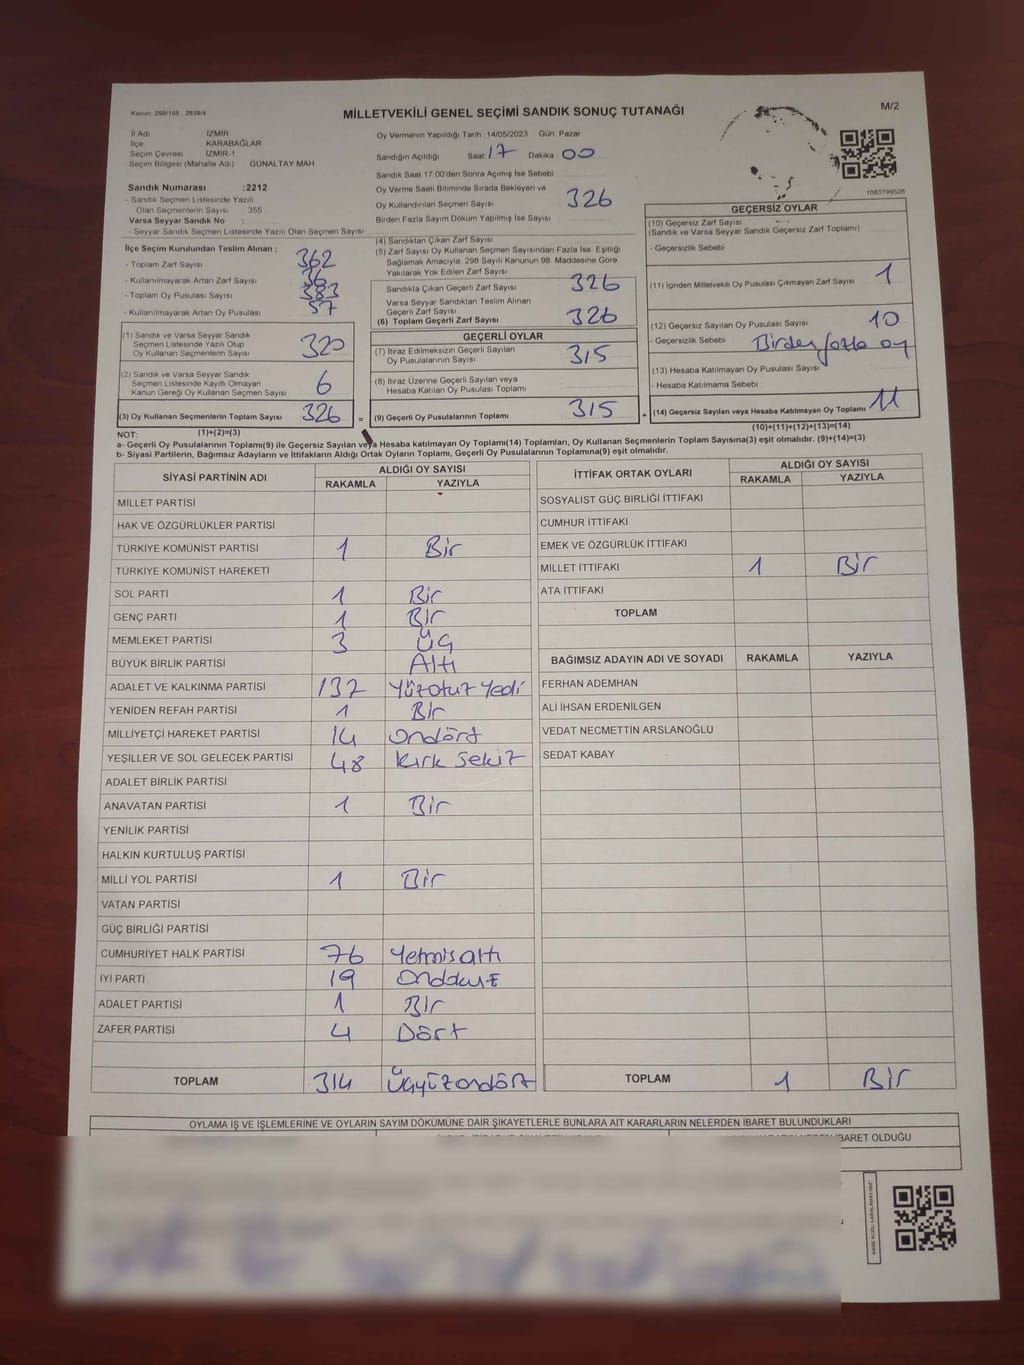 Kanun: 298/105 2839/4
MİLLETVEKİLİ GENEL SEÇİMİ SANDIK SONUÇ TUTANAĞI
M/2
İl Adı İZMİR
İlçe KARABAĞLAR
Seçim Çevresi İZMİR-1
Seçim Bölgesi (Mahalle Adı) GÜNALTAY MAH
Sandık Numarası :2212
- Sandık Seçmen Listesinde Yazılı
Olan Seçmenlerin Sayısı 355
Varsa Seyyar Sandık No :
- Seyyar Sandık Seçmen Listesinde Yazılı Olan Seçmen Sayısı
Oy Vermenin Yapıldığı Tarih :14/05/2023 Gün: Pazar
Sandığın Açıldığı Saat 17 Dakika 00
Sandık Saat 17:00'den Sonra Açılmış İse Sebebi
Oy Verme Saati Bitiminde Sırada Bekleyen ve
Oy Kullandırılan Seçmen Sayısı 326
Birden Fazla Sayım Döküm Yapılmış İse Sayısı
1083799526
İlçe Seçim Kurulundan Teslim Alınan ;
- Toplam Zarf Sayısı 362
- Kullanılmayarak Artan Zarf Sayısı 36
- Toplam Oy Pusulası Sayısı 383
- Kullanılmayarak Artan Oy Pusulası 57
(1) Sandık ve Varsa Seyyar Sandık
Seçmen Listesinde Yazılı Olup
Oy Kullanan Seçmenlerin Sayısı 320
(2) Sandık ve Varsa Seyyar Sandık
Seçmen Listesinde Kayıtlı Olmayan
Kanun Gereği Oy Kullanan Seçmen Sayısı 6
(3) Oy Kullanan Seçmenlerin Toplam Sayısı 326
(1)+(2)=(3)
(4) Sandıktan Çıkan Zarf Sayısı
(5) Zarf Sayısı Oy Kullanan Seçmen Sayısından Fazla İse, Eşitliği
Sağlamak Amacıyla, 298 Sayılı Kanunun 98. Maddesine Göre
Yakılarak Yok Edilen Zarf Sayısı
Sandıkta Çıkan Geçerli Zarf Sayısı 326
Varsa Seyyar Sandıktan Teslim Alınan
Geçerli Zarf Sayısı
(6) Toplam Geçerli Zarf Sayısı 326
GEÇERLİ OYLAR
(7) İtiraz Edilmeksizin Geçerli Sayılan
Oy Pusulalarının Sayısı 315
(8) İtiraz Üzerine Geçerli Sayılan veya
Hesaba Katılan Oy Pusulası Toplamı
= (9) Geçerli Oy Pusulalarının Toplamı 315
GEÇERSİZ OYLAR
(10) Geçersiz Zarf Sayısı
(Sandık ve Varsa Seyyar Sandık Geçersiz Zarf Toplamı)
- Geçersizlik Sebebi
(11) İçinden Milletvekili Oy Pusulası Çıkmayan Zarf Sayısı 1
(12) Geçersiz Sayılan Oy Pusulası Sayısı 10
- Geçersizlik Sebebi Birden fazla oy
(13) Hesaba Katılmayan Oy Pusulası Sayısı
- Hesaba Katılmama Sebebi
+ (14) Geçersiz Sayılan veya Hesaba Katılmayan Oy Toplamı 11
(10)+(11)+(12)+(13)=(14)
NOT:
a- Geçerli Oy Pusulalarının Toplamı(9) ile Geçersiz Sayılan veya Hesaba katılmayan Oy Toplamı(14) Toplamları, Oy Kullanan Seçmenlerin Toplam Sayısına(3) eşit olmalıdır. (9)+(14)=(3)
b- Siyasi Partilerin, Bağımsız Adayların ve İttifakların Aldığı Ortak Oyların Toplamı, Geçerli Oy Pusulalarının Toplamına(9) eşit olmalıdır.
SİYASİ PARTİNİN ADI ALDIĞI OY SAYISI
RAKAMLA YAZIYLA
MİLLET PARTİSİ
HAK VE ÖZGÜRLÜKLER PARTİSİ
TÜRKİYE KOMÜNİST PARTİSİ 1 Bir
TÜRKİYE KOMÜNİST HAREKETİ
SOL PARTİ 1 Bir
GENÇ PARTİ 1 Bir
MEMLEKET PARTİSİ 3 Üç
BÜYÜK BİRLİK PARTİSİ Altı
ADALET VE KALKINMA PARTİSİ 137 Yüzotuz Yedi
YENİDEN REFAH PARTİSİ 1 Bir
MİLLİYETÇİ HAREKET PARTİSİ 14 Ondört
YEŞİLLER VE SOL GELECEK PARTİSİ 48 Kırk Sekiz
ADALET BİRLİK PARTİSİ
ANAVATAN PARTİSİ 1 Bir
YENİLİK PARTİSİ
HALKIN KURTULUŞ PARTİSİ
MİLLİ YOL PARTİSİ 1 Bir
VATAN PARTİSİ
GÜÇ BİRLİĞİ PARTİSİ
CUMHURİYET HALK PARTİSİ 76 Yetmişaltı
İYİ PARTİ 19 Ondokuz
ADALET PARTİSİ 1 Bir
ZAFER PARTİSİ 4 Dört
TOPLAM 314 Üçyüzondört
İTTİFAK ORTAK OYLARI ALDIĞI OY SAYISI
RAKAMLA YAZIYLA
SOSYALİST GÜÇ BİRLİĞİ İTTİFAKI
CUMHUR İTTİFAKI
EMEK VE ÖZGÜRLÜK İTTİFAKI
MİLLET İTTİFAKI 1 Bir
ATA İTTİFAKI
TOPLAM
BAĞIMSIZ ADAYIN ADI VE SOYADI RAKAMLA YAZIYLA
FERHAN ADEMHAN
ALİ İHSAN ERDENİLGEN
VEDAT NECMETTİN ARSLANOĞLU
SEDAT KABAY
TOPLAM 1 Bir
OYLAMA İŞ VE İŞLEMLERİNE VE OYLARIN SAYIM DÖKÜMÜNE DAİR ŞİKAYETLERLE BUNLARA AİT KARARLARIN NELERDEN İBARET BULUNDUKLARI
İBARET OLDUĞU